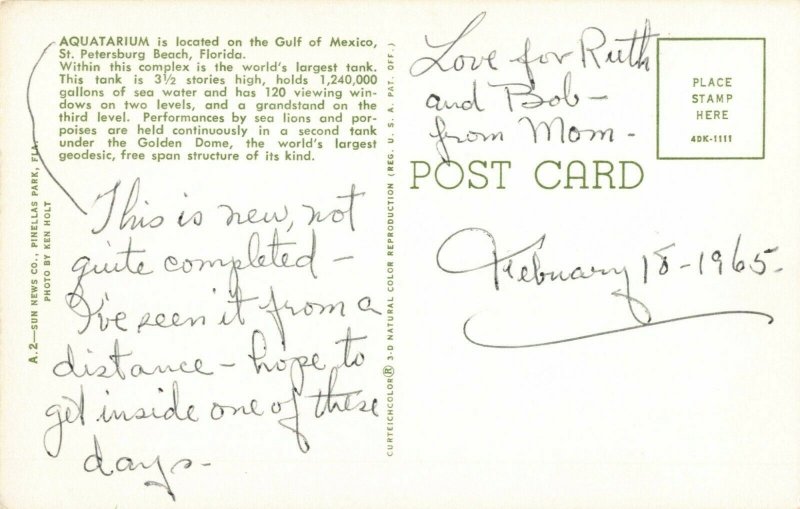 AQUATARIUM is located on the Gulf of Mexico,
St. Petersburg Beach, Florida.
Within this complex is the world's largest tank.
This tank is 3½ stories high, holds 1,240,000
gallons of sea water and has 120 viewing win-
dows on two levels, and a grandstand on the
third level. Performances by sea lions and por-
poises are held continuously in a second tank
under the Golden Dome, the world's largest
geodesic, free span structure of its kind.
This is new, not
quite completed –
I've seen it from a
distance – hope to
get inside one of these
days –
A.2—SUN NEWS CO., PINELLAS PARK, FLA.
PHOTO BY KEN HOLT
CURTEICHCOLOR® 3-D NATURAL COLOR REPRODUCTION (REG. U. S. A. PAT. OFF.)
Love for Ruth
and Bob –
from Mom –
PLACE
STAMP
HERE
4DK-1111
POST CARD
February 18 – 1965.